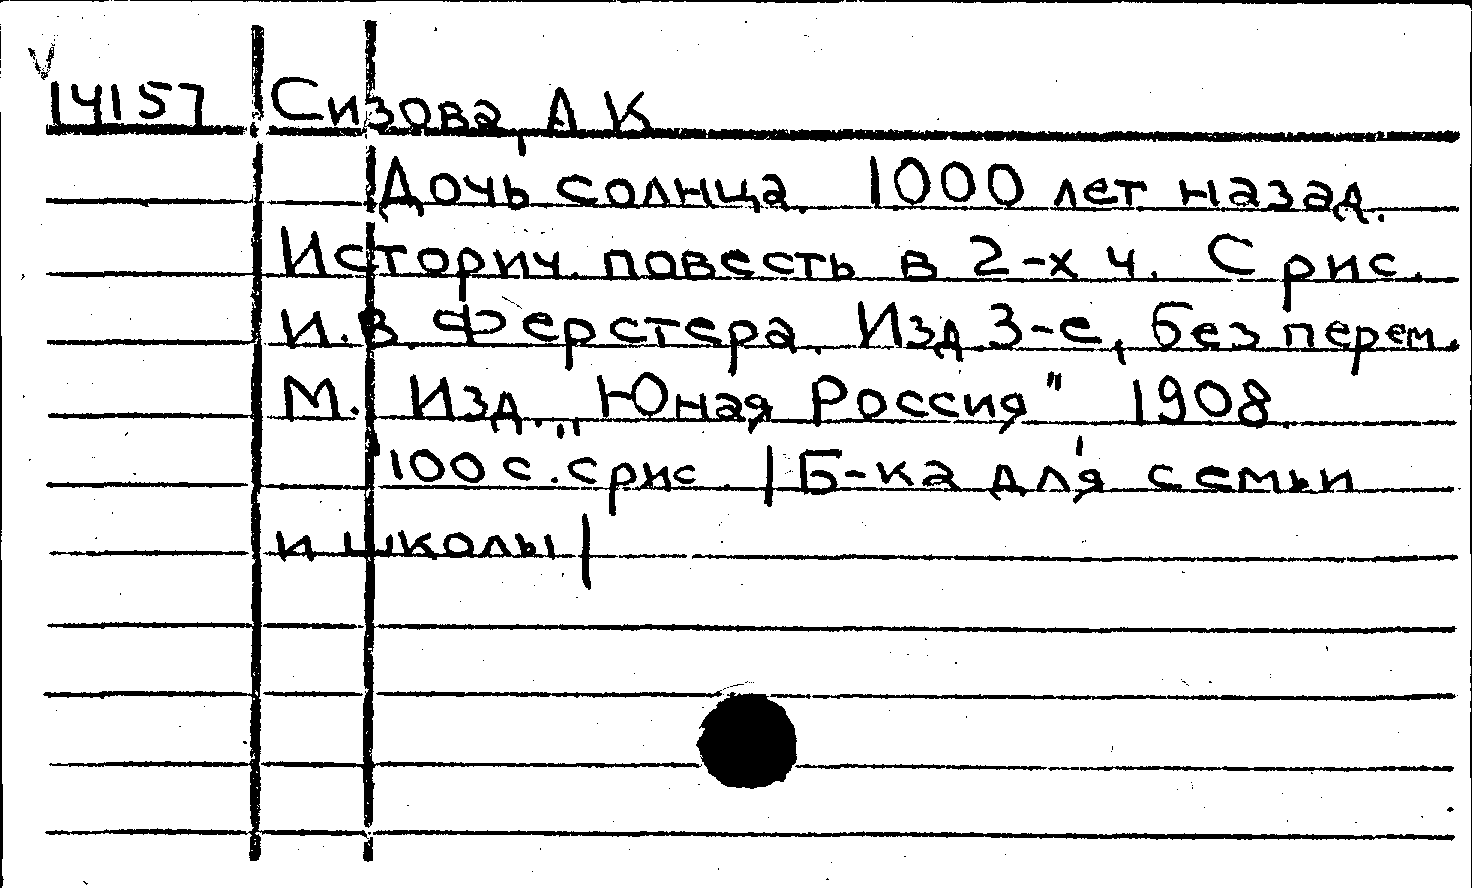 14157 Сизова, А К
Дочь солнца. 1000 лет назад.
Историч. повесть в 2-х ч. С рис.
И.В. Ферстера. Изд. 3-е, без перем.
М. Изд. „Юная Россия" 1908.
100 с. с рис. |Б-ка для семьи
и школы|